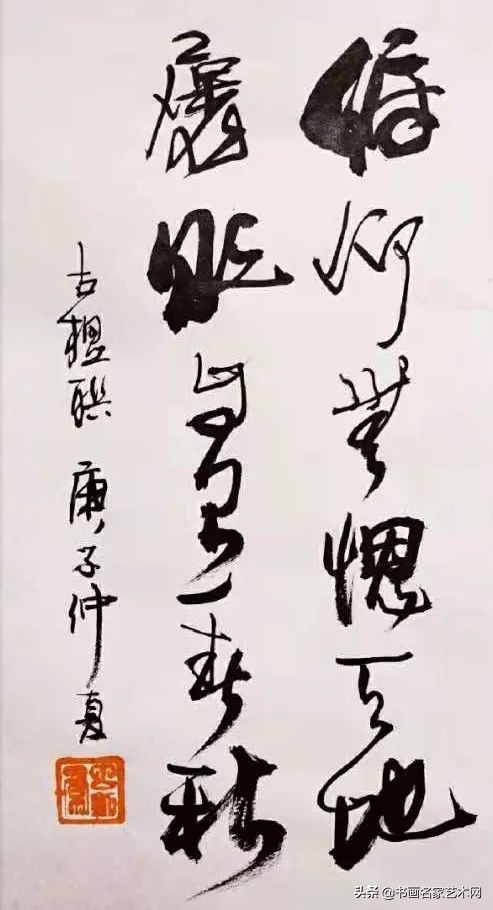 俯仰無愧天地
褒貶自有春秋
古楹聯 庚子仲夏
头条 @书画名家艺术网